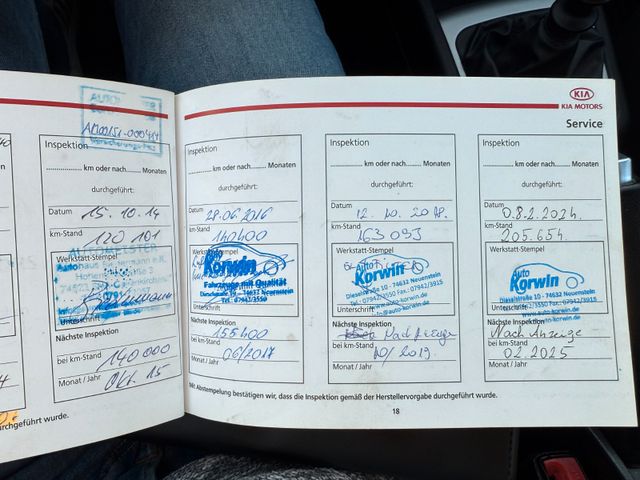 KIA
KIA MOTORS
Service
AM00151-000454
Inspektion
km oder nach Monaten
durchgeführt:
Datum 15.10.14
km-Stand 120 101
Werkstatt-Stempel
Unterschrift
Nächste Inspektion
bei km-Stand 140 000
Monat / Jahr Okt. 15
rchgeführt wurde.
Inspektion
km oder nach Monaten
durchgeführt:
Datum 28.06.2016
km-Stand 140400
Werkstatt-Stempel
Auto
Korwin
Fahrzeuge mit Qualität
Dieselstraße 10 · 74632 Neuenstein
Tel. 07942/3550
Unterschrift
Nächste Inspektion
bei km-Stand 155400
Monat / Jahr 06/2017
Inspektion
km oder nach Monaten
durchgeführt:
Datum 12. 10. 2018.
km-Stand 163 093
Werkstatt-Stempel
Auto
Korwin
Dieselstraße 10 - 74632 Neuenstein
Tel.: 07942/3550 Fax.: 07942/3915
www.auto-korwin.de
info@auto-korwin.de
Unterschrift
Nächste Inspektion
bei km-Stand
Monat / Jahr 10/2019.
Inspektion
km oder nach Monaten
durchgeführt:
Datum 08.2.2024.
km-Stand 205.654.
Werkstatt-Stempel
Auto
Korwin
Dieselstraße 10 - 74632 Neuenstein
Tel.: 07942/3550 Fax.: 07942/3915
www.auto-korwin.de
Unterschrift
Nächste Inspektion
bei km-Stand Nach Anzeige
Monat / Jahr 02.2025
Mit Abstempelung bestätigen wir, dass die Inspektion gemäß der Herstellervorgabe durchgeführt wurde.
18